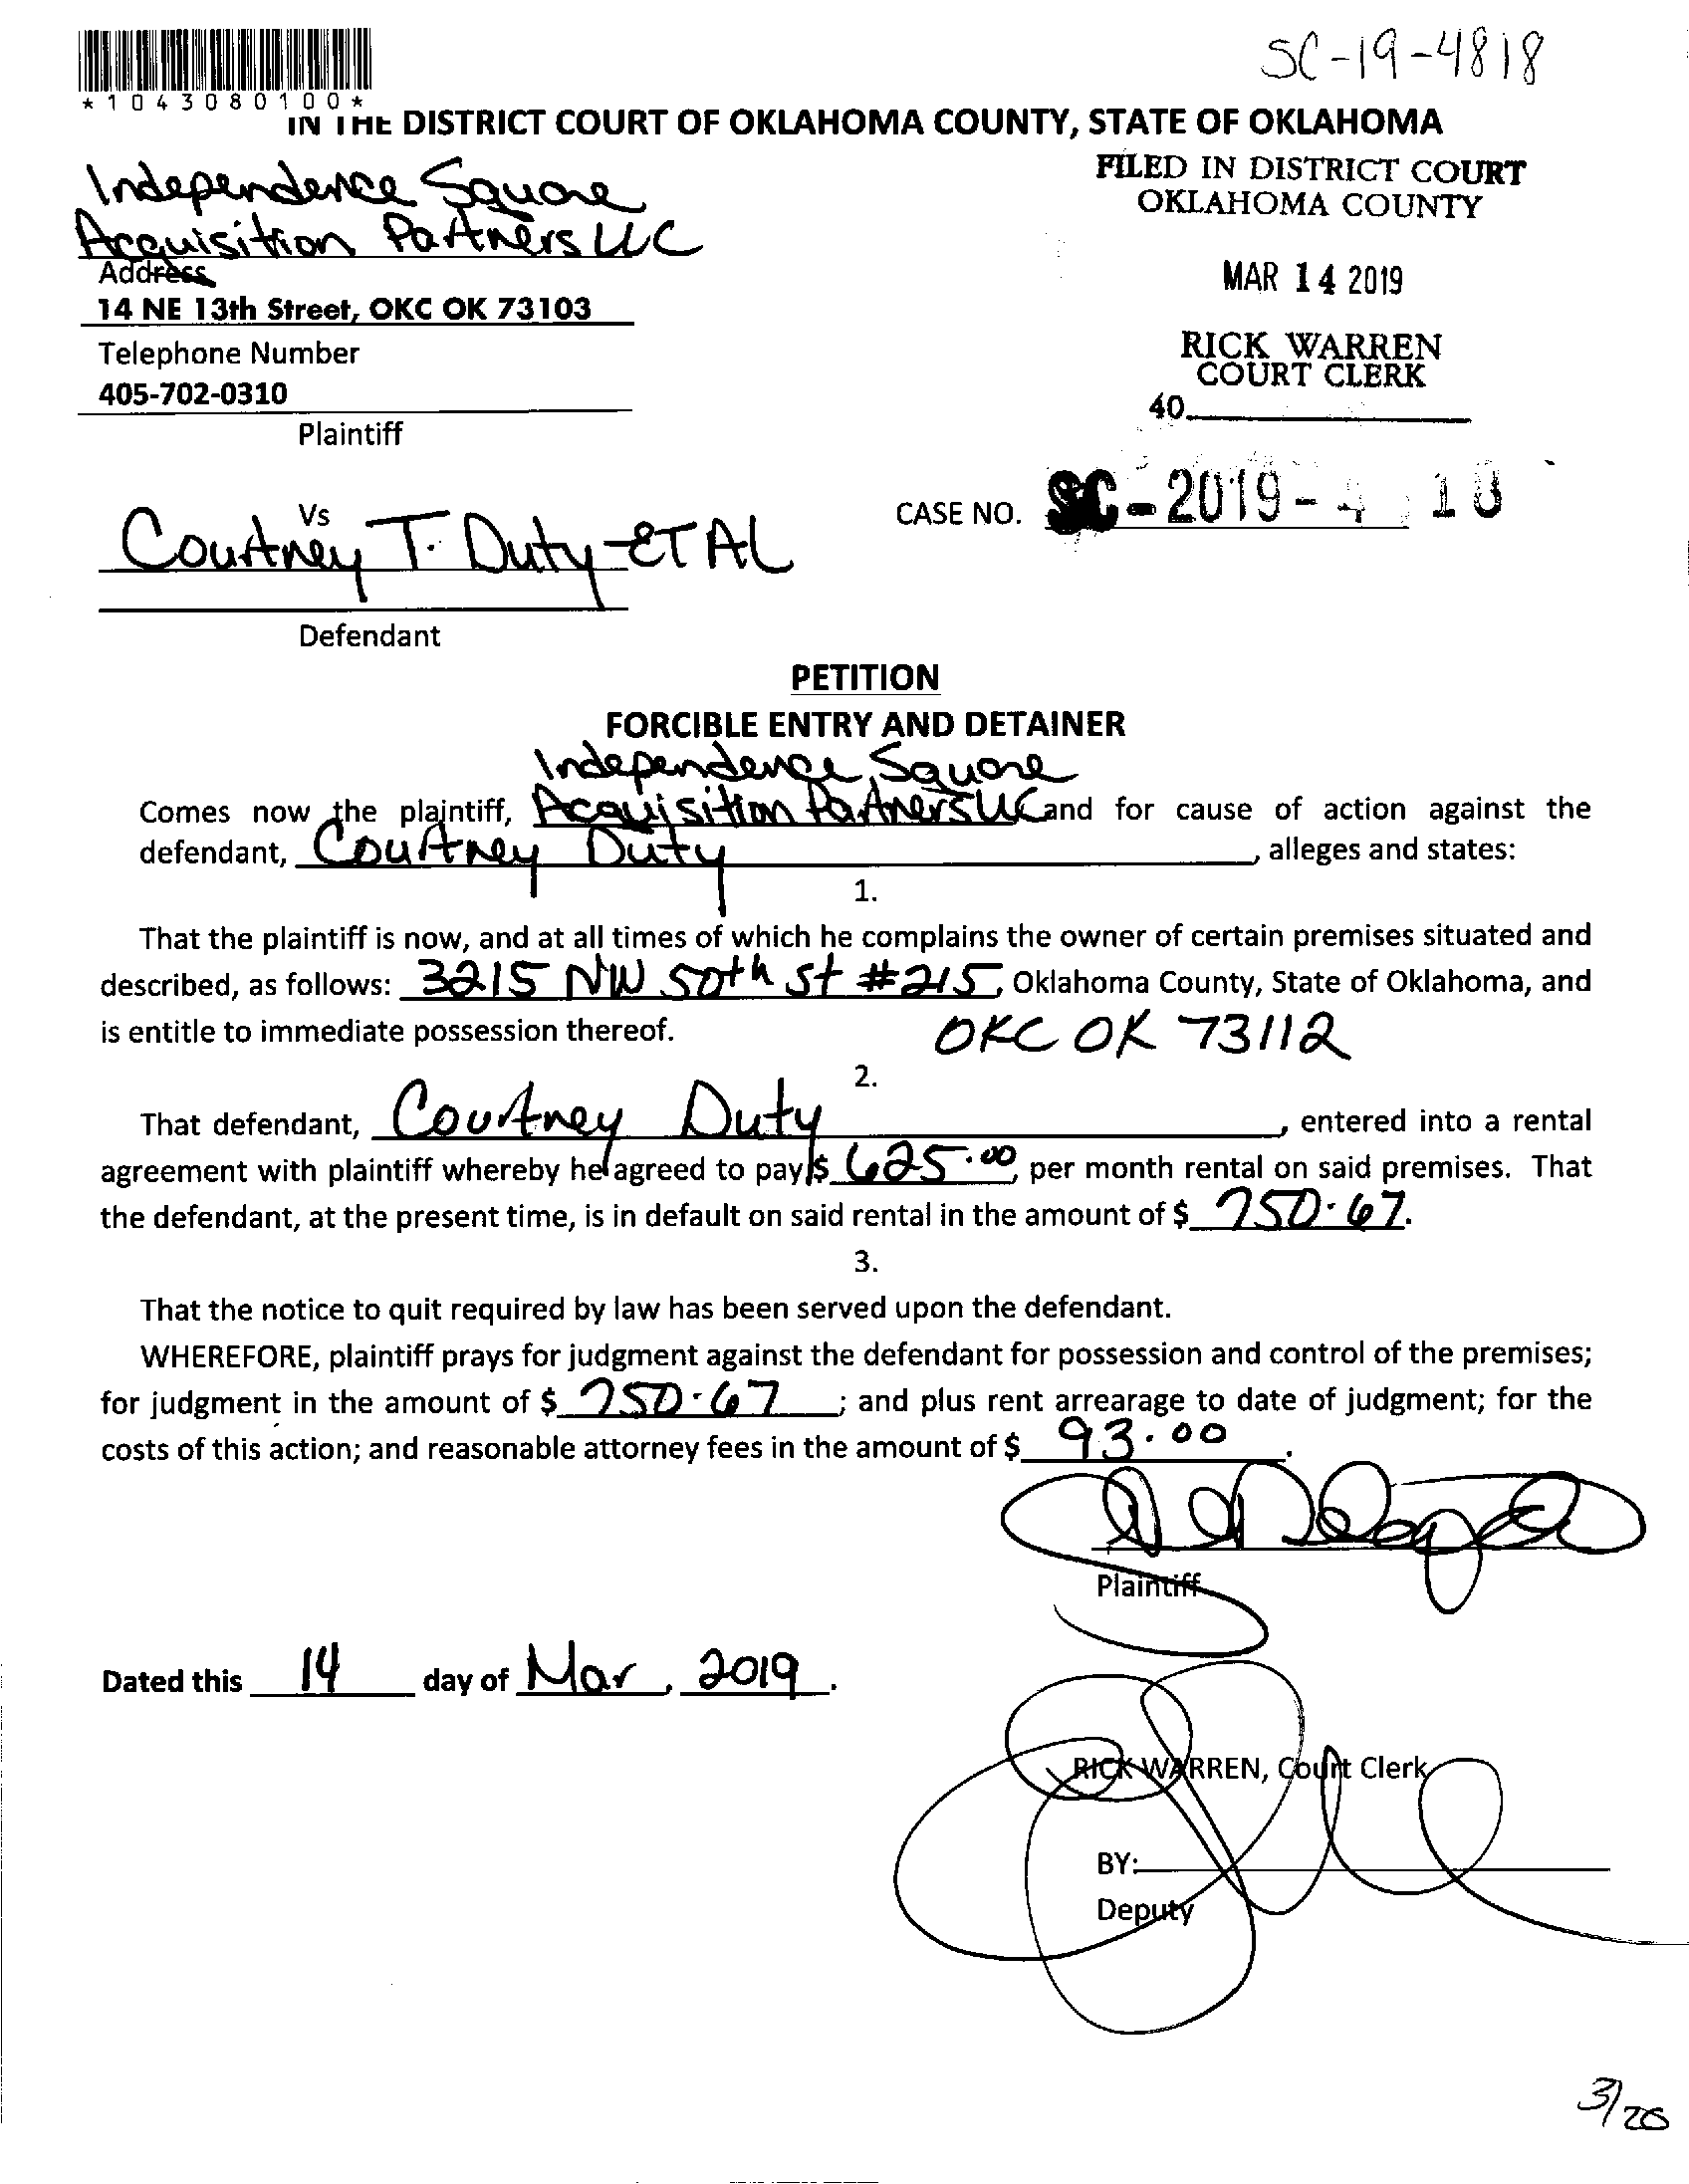 SC-19-4818
*1043080100*
IN THE DISTRICT COURT OF OKLAHOMA COUNTY, STATE OF OKLAHOMA
Independence Square
Acquisition Partners LLC
Address
14 NE 13th Street, OKC OK 73103
Telephone Number
405-702-0310
Plaintiff
FILED IN DISTRICT COURT
OKLAHOMA COUNTY
MAR 14 2019
RICK WARREN
COURT CLERK
40
Vs
Courtney T. Duty-ET AL
Defendant
CASE NO. SC-2019-4 18
PETITION
FORCIBLE ENTRY AND DETAINER
Independence Square
Comes now the plaintiff, Acquisition Partners LLC and for cause of action against the
defendant, Courtney Duty, alleges and states:
1.
That the plaintiff is now, and at all times of which he complains the owner of certain premises situated and
described, as follows: 3215 NW 50th St #215, Oklahoma County, State of Oklahoma, and
is entitle to immediate possession thereof. OKC OK 73112
2.
That defendant, Courtney Duty, entered into a rental
agreement with plaintiff whereby he agreed to pay $ 625.00, per month rental on said premises. That
the defendant, at the present time, is in default on said rental in the amount of $ 750.67.
3.
That the notice to quit required by law has been served upon the defendant.
WHEREFORE, plaintiff prays for judgment against the defendant for possession and control of the premises;
for judgment in the amount of $ 750.67; and plus rent arrearage to date of judgment; for the
costs of this action; and reasonable attorney fees in the amount of $ 93.00.
Plaintiff
Dated this 14 day of Mar, 2019.
RICK WARREN, Court Clerk
BY:
Deputy
3/20